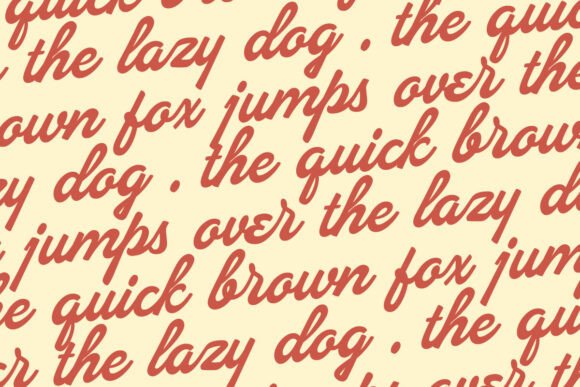 quick
the lazy dog . the quic
rown fox jumps over the
zy dog . the quick brown
jumps over the lazy d
he quick brown fox jum
er the lazy dog . the qu
over